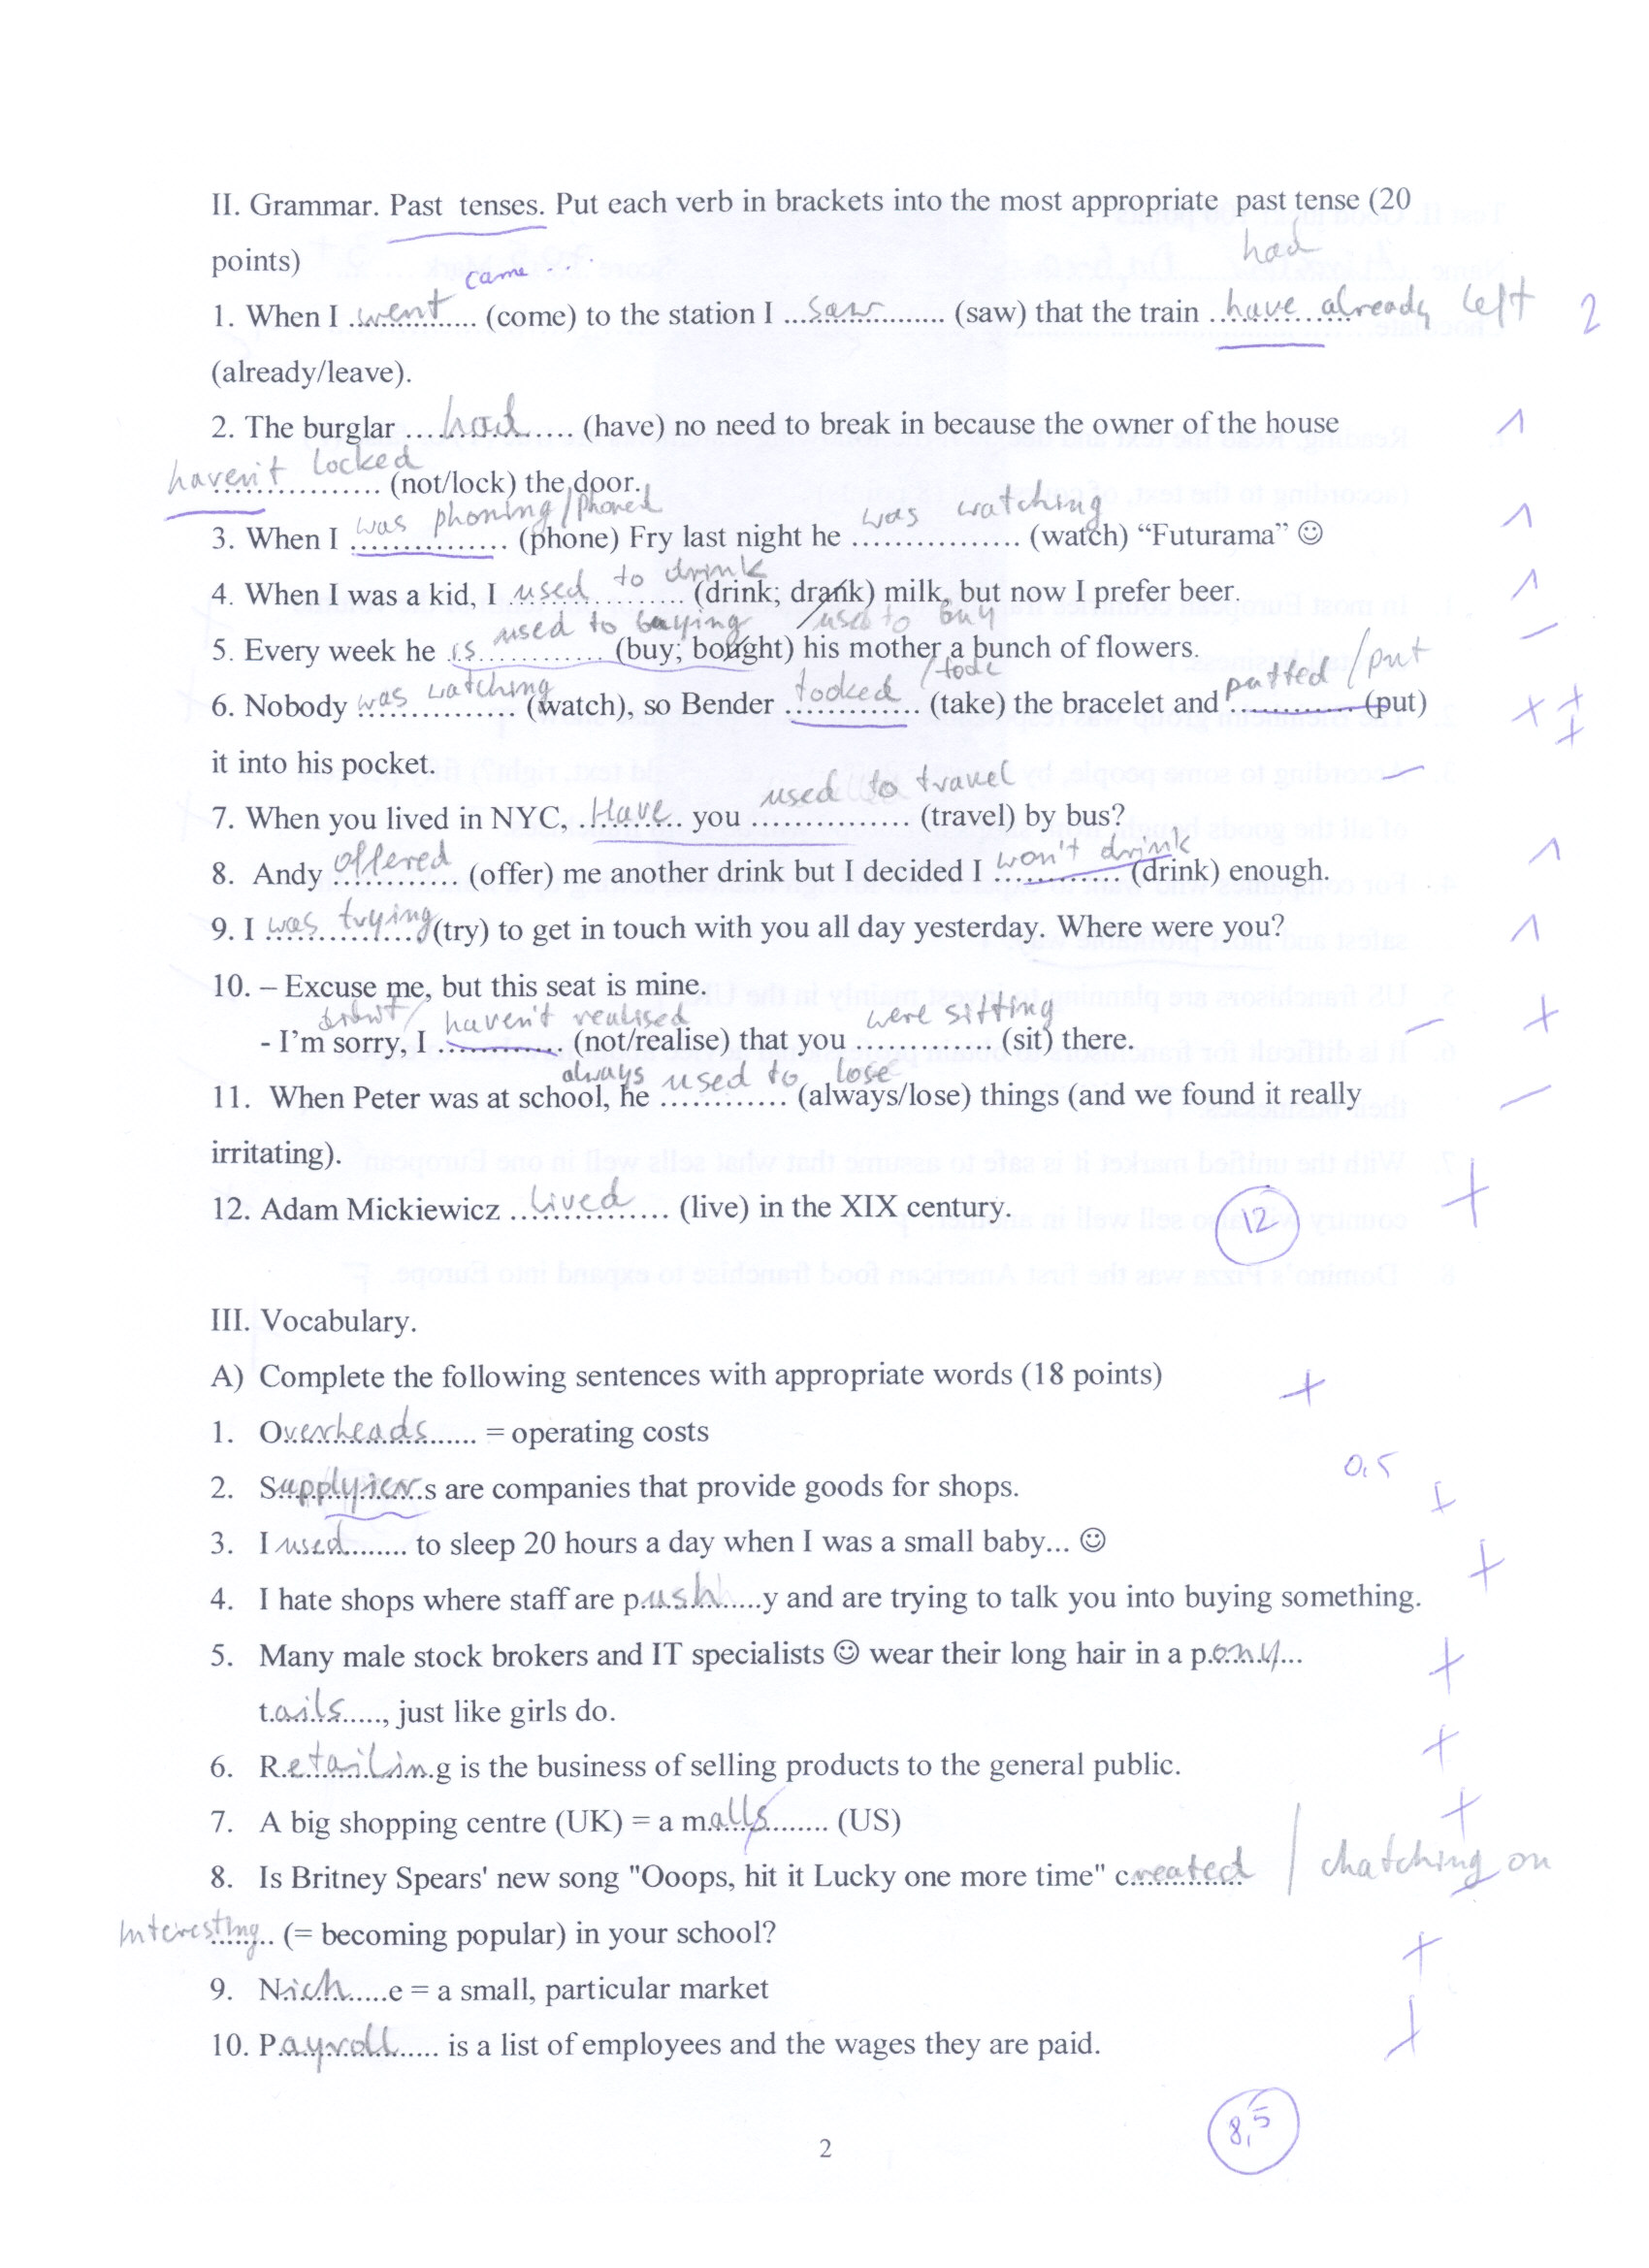 II. Grammar. Past tenses. Put each verb in brackets into the most appropriate past tense (20
had
points)
came ...
1. When I went (come) to the station I ...saw... (saw) that the train ..have already left 2
(already/leave).
2. The burglar ...had... (have) no need to break in because the owner of the house 1
haven't locked (not/lock) the door.
3. When I was phoning/phoned (phone) Fry last night he was watching (watch) “Futurama” ☺ 1
4. When I was a kid, I used to drink (drink; drank) milk, but now I prefer beer. 1
5. Every week he is used to buying /used to buy (buy; bought) his mother a bunch of flowers. –
6. Nobody was watching (watch), so Bender tooked / (take) the bracelet and putted /put (put) + + +
it into his pocket. –
7. When you lived in NYC, Have you used to travel (travel) by bus?
8. Andy offered (offer) me another drink but I decided I won't drink (drink) enough. 1
9. I was trying (try) to get in touch with you all day yesterday. Where were you? 1
10. – Excuse me, but this seat is mine.
- I’m sorry, I / haven't realised (not/realise) that you were sitting (sit) there. – +
11. When Peter was at school, he always used to lose (always/lose) things (and we found it really –
irritating).
12. Adam Mickiewicz lived (live) in the XIX century. 12 +
III. Vocabulary.
A) Complete the following sentences with appropriate words (18 points) +
1. Overheads = operating costs
2. Supplyiers are companies that provide goods for shops. 0,5
3. I used to sleep 20 hours a day when I was a small baby... ☺ +
4. I hate shops where staff are pushy and are trying to talk you into buying something. +
5. Many male stock brokers and IT specialists ☺ wear their long hair in a pony... +
tails....., just like girls do.
6. Retailing is the business of selling products to the general public. +
7. A big shopping centre (UK) = a malls (US) +
8. Is Britney Spears' new song "Ooops, hit it Lucky one more time" created / chatching on
interesting (= becoming popular) in your school?
9. Niche = a small, particular market +
10. Payroll is a list of employees and the wages they are paid. +
8,5
2